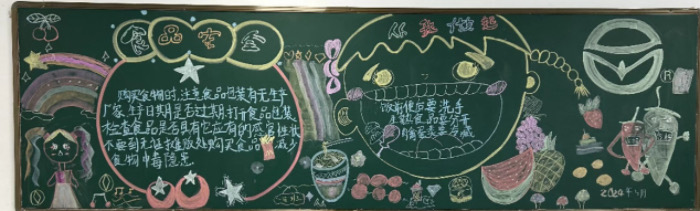 食品安全
从我做起
购买食物时,注意食品包装有无生产
厂家,生产日期是否过期,打开食品包装,
检查食品是否具有它应有的感官性状
不要到无证摊贩处购买食品,减少
食物中毒隐患
饭前便后要洗手
生熟食品要分开
2024年